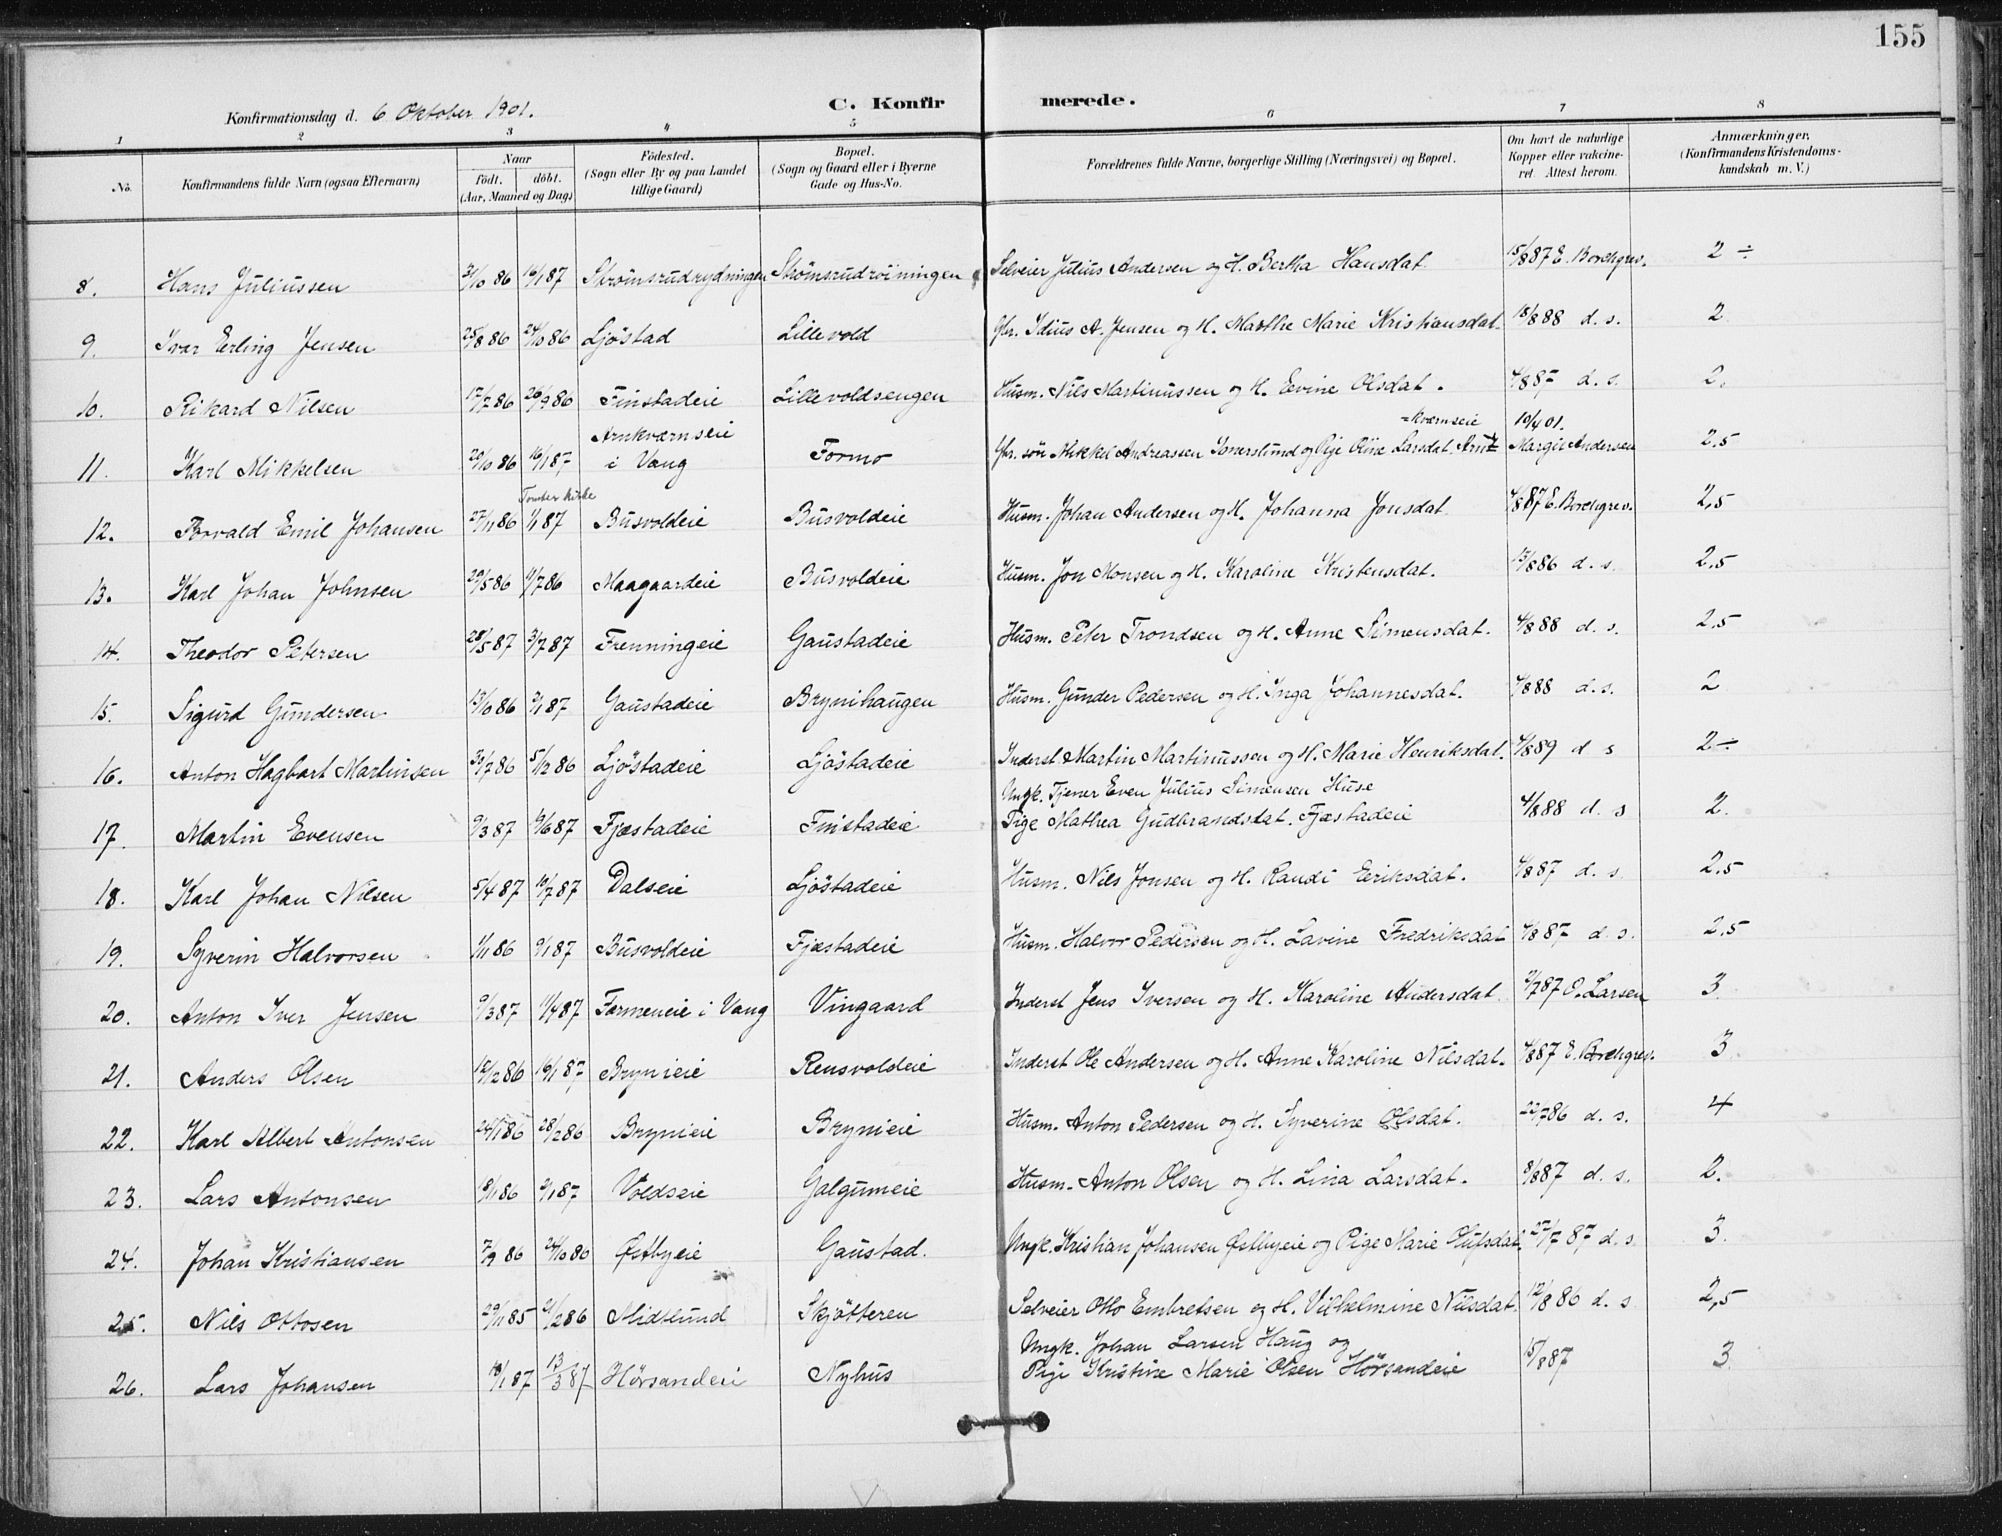 155
Konfirmationsdag d. 6 Oktober 1901.
C. Konfirmerede.
1 2 3 4 5 6 7 8
No. Konfirmandens fulde Navn (ogsaa Efternavn) Naar födt. döbt. (Aar, Maaned og Dag) Födested. (Sogn eller By og paa Landet tillige Gaard) Bopæl. (Sogn og Gaard eller i Byerne Gade og Hus-No. Forældrenes fulde Navne, borgerlige Stilling (Næringsvei) og Bopæl. Om havt de naturlige Kopper eller vakcineret. Attest herom. Anmærkninger. (Konfirmandens Kristendomskundskab m. V.)
8. Hans Juliussen 31/10 86 16/1 87 Strömsrudrydningen Strömsrudröiningen Selveier Julius Andersen og H. Bertha Hansdat. 15/8 87 E. Borchgrev. 2 ÷
9. Ivar Erling Jensen 25/8 86 24/10 86 Ljöstad Lillevold Gbr. Idius A. Jensen og H. Marthe Marie Kristiansdat. 18/8 88 d. s. 2
10. Rikard Nilsen 17/7 86 26/9 86 Finstadeie Lillevoldsengen Husm. Nils Martinussen og H. Evine Olsdat. 4/8 87 d. s. 2.
11. Karl Mikkelsen 20/10 86 16/1 87 Arnkværnseie i Vang Formo Gbr. sön Mikkel Andreassen Imerslund og Pige Oline Larsdat. Arn=kværnseie 10/4 01. Margit Andersen 2.5
12. Torvald Emil Johansen 27/11 86 Tomter kirke 1/1 87 Busvoldeie Busvoldeie Husm. Johan Andersen og H. Johanna Jonsdat. 4/8 87 E. Borchgrev. 2.5
13. Karl Johan Johnsen 29/5 86 11/7 86 Maagaardeie Busvoldeie Husm. Jon Monsen og H. Karoline Kristensdat. 13/8 86 d. s. 2.5
14. Theodor Petersen 28/5 87 3/7 87 Frenningeie Gaustadeie Husm. Peter Trondsen og H. Anne Simensdat. 4/8 88 d. s. 2.5
15. Sigurd Gundersen 13/10 86 2/1 87 Gaustadeie Brynihaugen Husm. Gunder Pedersen og H. Inga Johannesdat. 4/8 88 d. s. 2
16. Anton Hagbart Martinsen 30/7 86 5/12 86 Ljöstadeie Ljöstadeie Inderst Martin Martinussen og H. Marie Henriksdat. 4/8 89 d s 2 ÷
17. Martin Evensen 9/3 87 19/6 87 Fjæstadeie Finstadeie Ungk. Tjener Even Julius Simensen Huse
Pige Mathea Gudbrandsdat. Fjæstadeie 4/8 88 d. s 2.
18. Karl Johan Nilsen 5/4 87 10/7 87 Dalseie Ljöstadeie Husm. Nils Jonsen og H. Randi Eriksdat. 4/8 87 d. s. 2.5
19. Syverin Halvorsen 1/11 86 9/1 87 Busvoldeie Fjæstadeie Husm. Halvor Pedersen og H. Lavine Fredriksdat 4/8 87 d. s. 2.5
20. Anton Iver Jensen 9/3 87 11/4 87 Farmeneie i Vang Vingaard Inderst Jens Iversen og H. Karoline Andersdat. 2/7 87 O. Larsen 3.
21. Anders Olsen 12/12 86 16/1 87 Brynieie Rensvoldeie Inderst Ole Andersen og H. Anne Karoline Nilsdat. 4/8 87 E. Borchgrev. 3.
22. Karl Albert Antonsen 24/1 86 28/2 86 Brynieie Brynieie Husm. Anton Pedersen og H. Syverine Olsdat. 22/7 86 d. s. 4
23. Lars Antonsen 18/11 86 9/1 87 Voldseie Galgumeie Husm. Anton Olsen og H. Lina Larsdat. 8/9 87 d. s. 2.
24. Johan Kristiansen 7/9 86 24/10 86 Østbyeie Gaustad. Ungk. Kristian Johansen Østbyeie og Pige Marie Olufsdat. 27/7 87 d. s. 3.
25. Nils Ottosen 29/11 85 21/2 86 Midtlund Skjötteren Selveier Otto Embretsen og H. Vilhelmine Nilsdat. 12/8 86 d. s 2,5
26. Lars Johansen 18/1 87 13/3 87 Hörsandeie Nyhus Ungk. Johan Larsen Haug og
Pige Kristine Marie Olsen Hörsandeie 15/8 87 3.